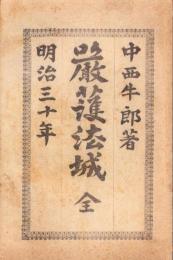 中西牛郎著
嚴護法城 全
明治三十年